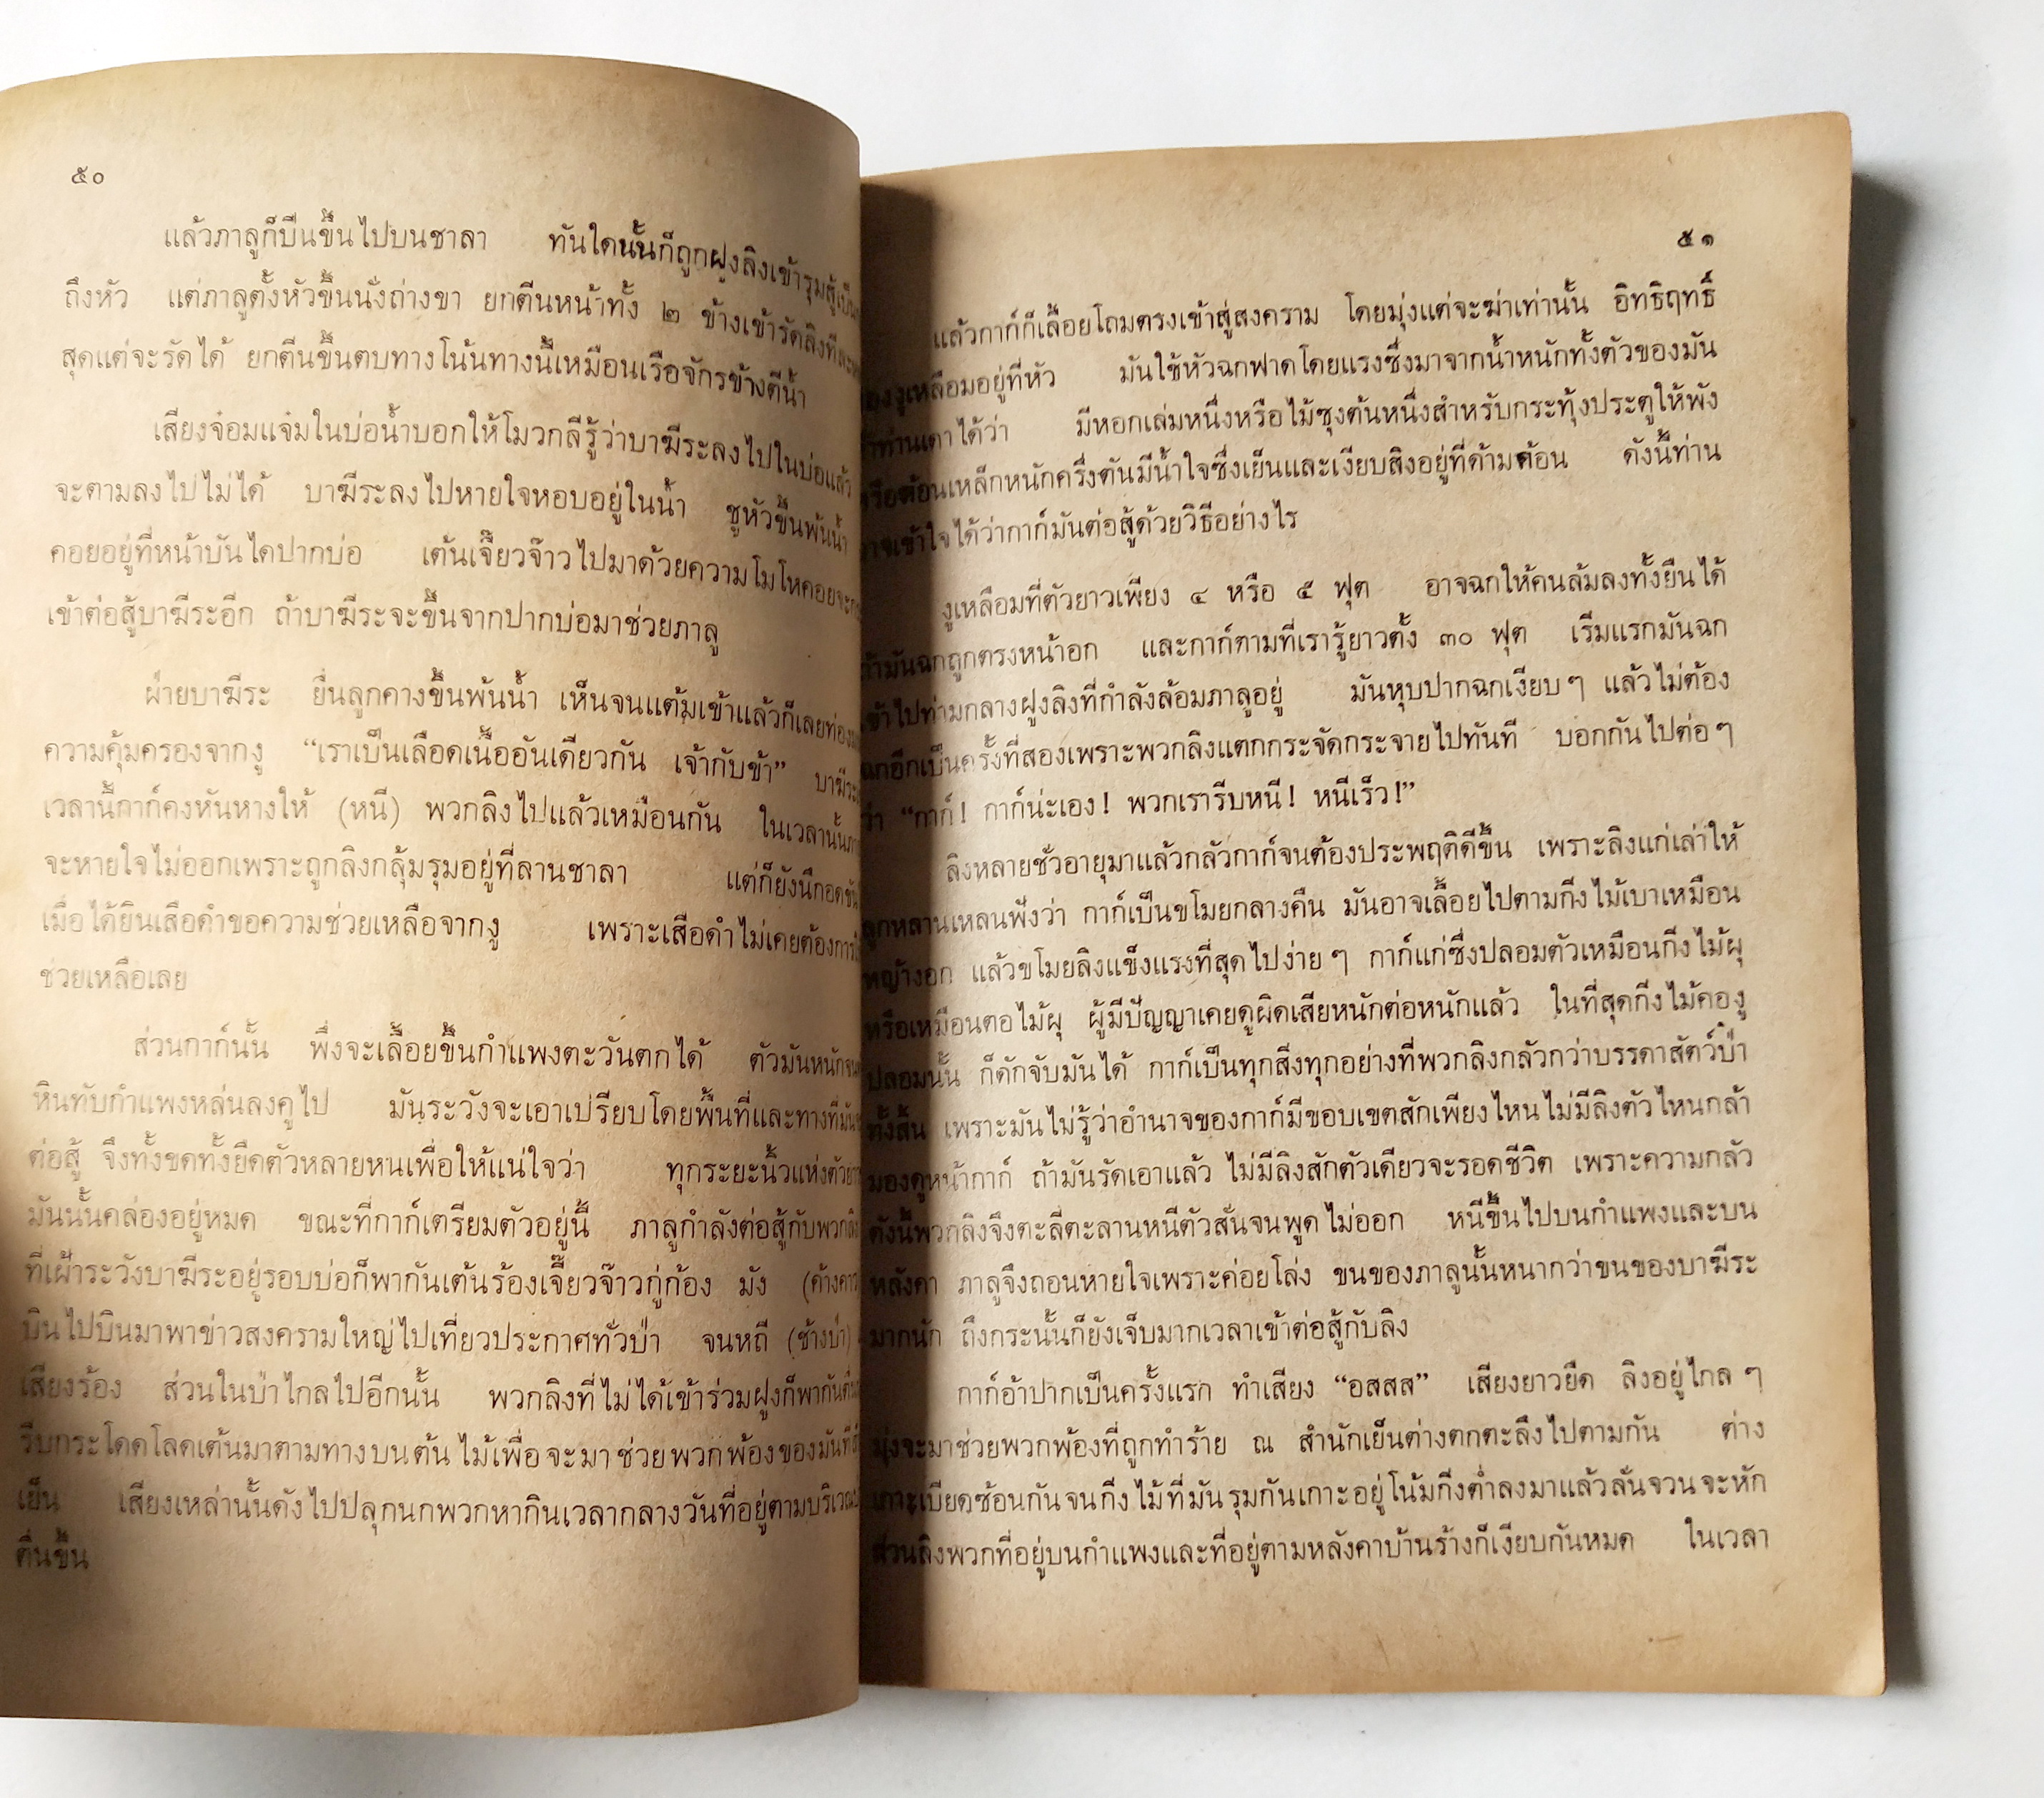 ๕๐
แล้วภาลูก็บีนขึ้นไปบนชาลา ทันใดนั้นก็ถูกฝูงลิงเข้ารุมสู้
ถึงหัว แต่ภาลูตั้งหัวขึ้นนั่งถ่างขา ยกตีนหน้าทั้ง ๒ ข้างเข้ารัดลิงทีละ
สุดแต่จะรัดได้ ยกตีนขึ้นตบทางโน้นทางนี้เหมือนเรือจักรข้างตีน้ำ
เสียงจ๋อมแจ๋มในบ่อน้ำบอกให้โมวกลีรู้ว่าบาฆีระลงไปในบ่อแล้ว
จะตามลงไปไม่ได้ บาฆีระลงไปหายใจหอบอยู่ในน้ำ ชูหัวขึ้นพ้นน้ำ
คอยอยู่ที่หน้าบันไดปากบ่อ เต้นเจี๊ยวจ๊าวไปมาด้วยความโมโหคอยจะ
เข้าต่อสู้บาฆีระอีก ถ้าบาฆีระจะขึ้นจากปากบ่อมาช่วยภาลู
ฝ่ายบาฆีระ ยื่นลูกคางขึ้นพ้นน้ำ เห็นจนแต้มเข้าแล้วก็เลยท่อง
ความคุ้มครองจากงู “เราเป็นเลือดเนื้ออันเดียวกัน เจ้ากับข้า” บาฆีระ
เวลานี้กาก์คงหันหางให้ (หนี) พวกลิงไปแล้วเหมือนกัน ในเวลานั้น
จะหายใจไม่ออกเพราะถูกลิงกลุ้มรุมอยู่ที่ลานชาลา แต่ก็ยังนึกอดขัน
เมื่อได้ยินเสือดำขอความช่วยเหลือจากงู เพราะเสือดำไม่เคยต้องการ
ช่วยเหลือเลย
ส่วนกาก์นั้น พึ่งจะเลื้อยขึ้นกำแพงตะวันตกได้ ตัวมันหนักจน
หินทับกำแพงหล่นลงคูไป มันระวังจะเอาเปรียบโดยพื้นที่และทางที่มัน
ต่อสู้ จึงทั้งขดทั้งยืดตัวหลายหนเพื่อให้แน่ใจว่า ทุกระยะนิ้วแห่งตัว
มันนั้นคล่องอยู่หมด ขณะที่กาก์เตรียมตัวอยู่นี้ ภาลูกำลังต่อสู้กับพวกลิง
ที่เฝ้าระวังบาฆีระอยู่รอบบ่อก็พากันเต้นร้องเจี๊ยวจ๊าวกู่ก้อง มัง (ค้างคาว
บินไปบินมาพาข่าวสงครามใหญ่ไปเที่ยวประกาศทั่วป่า จนหถี (ช้างป่า)
เสียงร้อง ส่วนในป่าไกลไปอีกนั้น พวกลิงที่ไม่ได้เข้าร่วมฝูงก็พากัน
รีบกระโดดโลดเต้นมาตามทางบนต้นไม้เพื่อจะมาช่วยพวกพ้องของมันที่
เย็น เสียงเหล่านั้นดังไปปลุกนกพวกหากินเวลากลางวันที่อยู่ตามบริเวณ
ตื่นขึ้น
๕๑
แล้วกาก์ก็เลื้อยโถมตรงเข้าสู่สงคราม โดยมุ่งแต่จะฆ่าเท่านั้น อิทธิฤทธิ์
ของงูเหลือมอยู่ที่หัว มันใช้หัวฉกฟาดโดยแรงซึ่งมาจากน้ำหนักทั้งตัวของมัน
ถ้าท่านเดาได้ว่า มีหอกเล่มหนึ่งหรือไม้ซุงต้นหนึ่งสำหรับกระทุ้งประตูให้พัง
หรือค้อนเหล็กหนักครึ่งตันมีน้ำใจซึ่งเย็นและเงียบสิงอยู่ที่ด้ามค้อน ดังนี้ท่าน
อาจเข้าใจได้ว่ากาก์มันต่อสู้ด้วยวิธีอย่างไร
งูเหลือมที่ตัวยาวเพียง ๔ หรือ ๕ ฟุต อาจฉกให้คนล้มลงทั้งยืนได้
ถ้ามันฉกถูกตรงหน้าอก และกาก์ตามที่เรารู้ยาวตั้ง ๓๐ ฟุต เริ่มแรกมันฉก
เข้าไปท่ามกลางฝูงลิงที่กำลังล้อมภาลูอยู่ มันหุบปากฉกเงียบๆ แล้วไม่ต้อง
ฉกอีกเป็นครั้งที่สองเพราะพวกลิงแตกกระจัดกระจายไปทันที บอกกันไปต่อๆ
ว่า “กาก์! กาก์น่ะเอง! พวกเรารีบหนี! หนีเร็ว!”
ลิงหลายชั่วอายุมาแล้วกลัวกาก์จนต้องประพฤติดีขึ้น เพราะลิงแก่เล่าให้
ลูกหลานเหลนฟังว่า กาก์เป็นขโมยกลางคืน มันอาจเลื้อยไปตามกิ่งไม้เบาเหมือน
หญ้างอก แล้วขโมยลิงแข็งแรงที่สุดไปง่ายๆ กาก์แก่ซึ่งปลอมตัวเหมือนกิ่งไม้ผุ
หรือเหมือนตอไม้ผุ ผู้มีปัญญาเคยดูผิดเสียหนักต่อหนักแล้ว ในที่สุดกิ่งไม้คองู
ปลอมนั้น ก็ดักจับมันได้ กาก์เป็นทุกสิ่งทุกอย่างที่พวกลิงกลัวกว่าบรรดาสัตว์ป่า
ทั้งสิ้น เพราะมันไม่รู้ว่าอำนาจของกาก์มีขอบเขตสักเพียงไหนไม่มีลิงตัวไหนกล้า
มองดูหน้ากาก์ ถ้ามันรัดเอาแล้ว ไม่มีลิงสักตัวเดียวจะรอดชีวิต เพราะความกลัว
ดังนี้พวกลิงจึงตะลีตะลานหนีตัวสั่นจนพูดไม่ออก หนีขึ้นไปบนกำแพงและบน
หลังคา ภาลูจึงถอนหายใจเพราะค่อยโล่ง ขนของภาลูนั้นหนากว่าขนของบาฆีระ
มากนัก ถึงกระนั้นก็ยังเจ็บมากเวลาเข้าต่อสู้กับลิง
กาก์อ้าปากเป็นครั้งแรก ทำเสียง “อสสส” เสียงยาวยืด ลิงอยู่ไกลๆ
มุ่งจะมาช่วยพวกพ้องที่ถูกทำร้าย ณ สำนักเย็นต่างตกตะลึงไปตามกัน ต่าง
เกาะเบียดซ้อนกันจนกิ่งไม้ที่มันรุมกันเกาะอยู่โน้มกิ่งต่ำลงมาแล้วลั่นจวนจะหัก
ส่วนลิงพวกที่อยู่บนกำแพงและที่อยู่ตามหลังคาบ้านร้างก็เงียบกันหมด ในเวลา